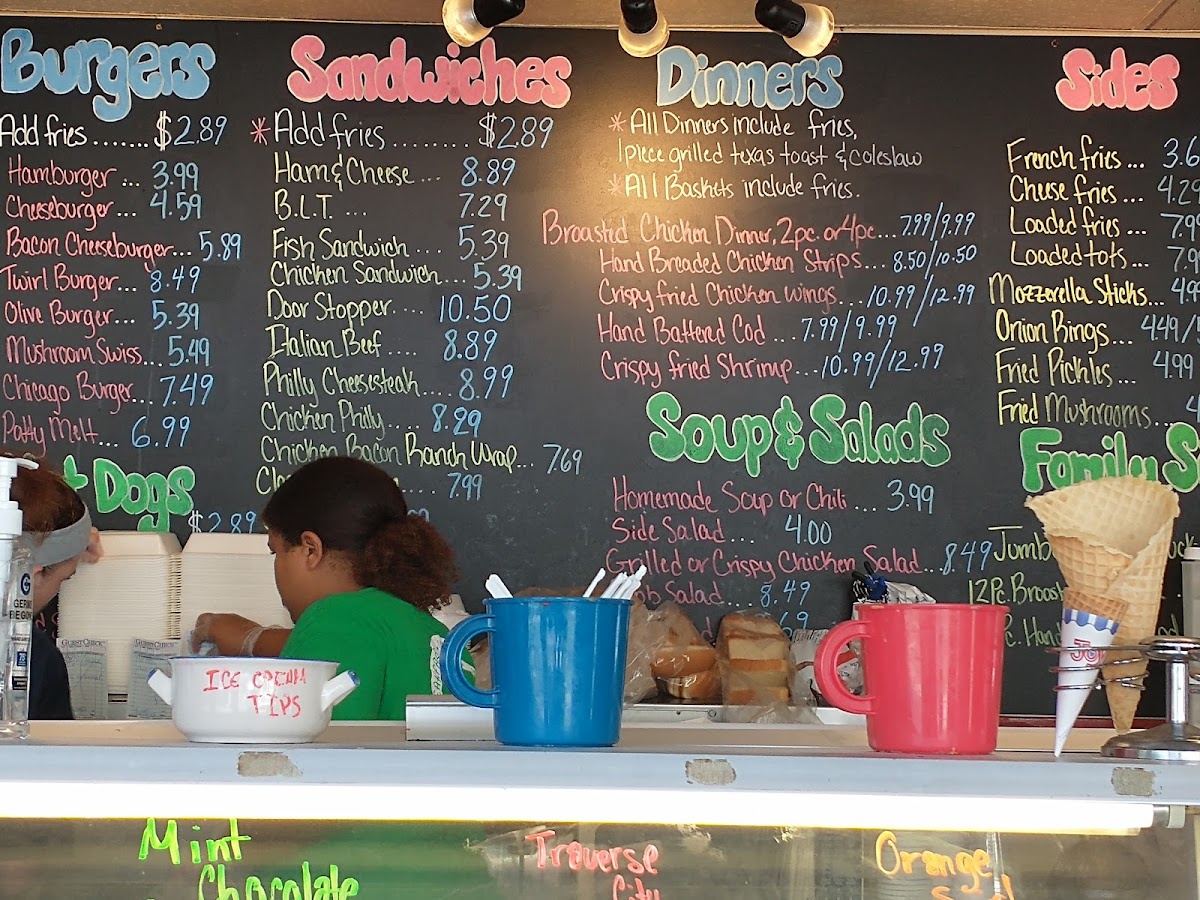 Burgers
Add fries ....... $2.89
Hamburger ... 3.99
Cheeseburger ... 4.59
Bacon Cheeseburger... 5.89
Twirl Burger... 8.49
Olive Burger... 5.39
Mushroom Swiss... 5.49
Chicago Burger... 7.49
Patty Melt... 6.99
Dogs
$2.89
Sandwiches
* Add fries ........ $2.89
Ham & Cheese ... 8.89
B.L.T. ... 7.29
Fish Sandwich .... 5.39
Chicken Sandwich.... 5.39
Door Stopper .... 10.50
Italian Beef .... 8.89
Philly Cheesesteak.... 8.99
Chicken Philly .... 8.29
Chicken Bacon Ranch Wrap... 7.69
.... 7.99
Dinners
* All Dinners include fries,
1 piece grilled texas toast & coleslaw
* All Baskets include fries.
Broasted Chicken Dinner, 2pc. or 4pc... 7.99/9.99
Hand Breaded Chicken Strips.... 8.50/10.50
Crispy fried Chicken wings... 10.99/12.99
Hand Battered Cod ... 7.99/9.99
Crispy fried Shrimp... 10.99/12.99
Soup & Salads
Homemade Soup or Chili ... 3.99
Side Salad ... 4.00
Grilled or Crispy Chicken Salad... 8.49
Salad ... 8.49
Sides
French fries ... 3.6
Cheese fries ... 4.29
Loaded fries ... 7.9
Loaded tots ... 7.9
Mozzarella Sticks... 4.9
Onion Rings ... 4.49/
Fried Pickles ... 4.99
Fried Mushrooms ... 4
Family S
Jumb
12 Pc. Broast
Pc. Hand
GUEST CHECK
GUEST CHECK
ICE CREAM
TIPS
JOY
Mint
Chocolate
Traverse
City
Orange